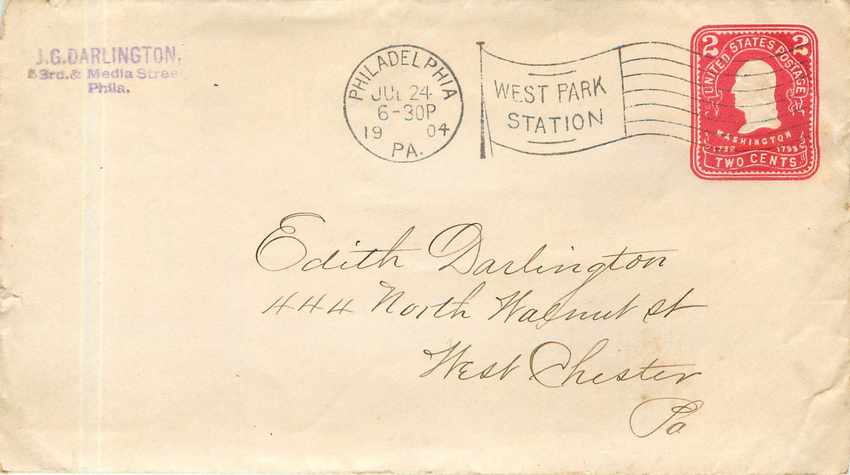 J.G. DARLINGTON,
53rd. & Media Street
Phila.
PHILADELPHIA
JUL 24
6-30P
19 04
PA.
WEST PARK
STATION
2 2
UNITED STATES POSTAGE
WASHINGTON
1732 1799
TWO CENTS
Edith Darlington
444 North Walnut St
West Chester
Pa